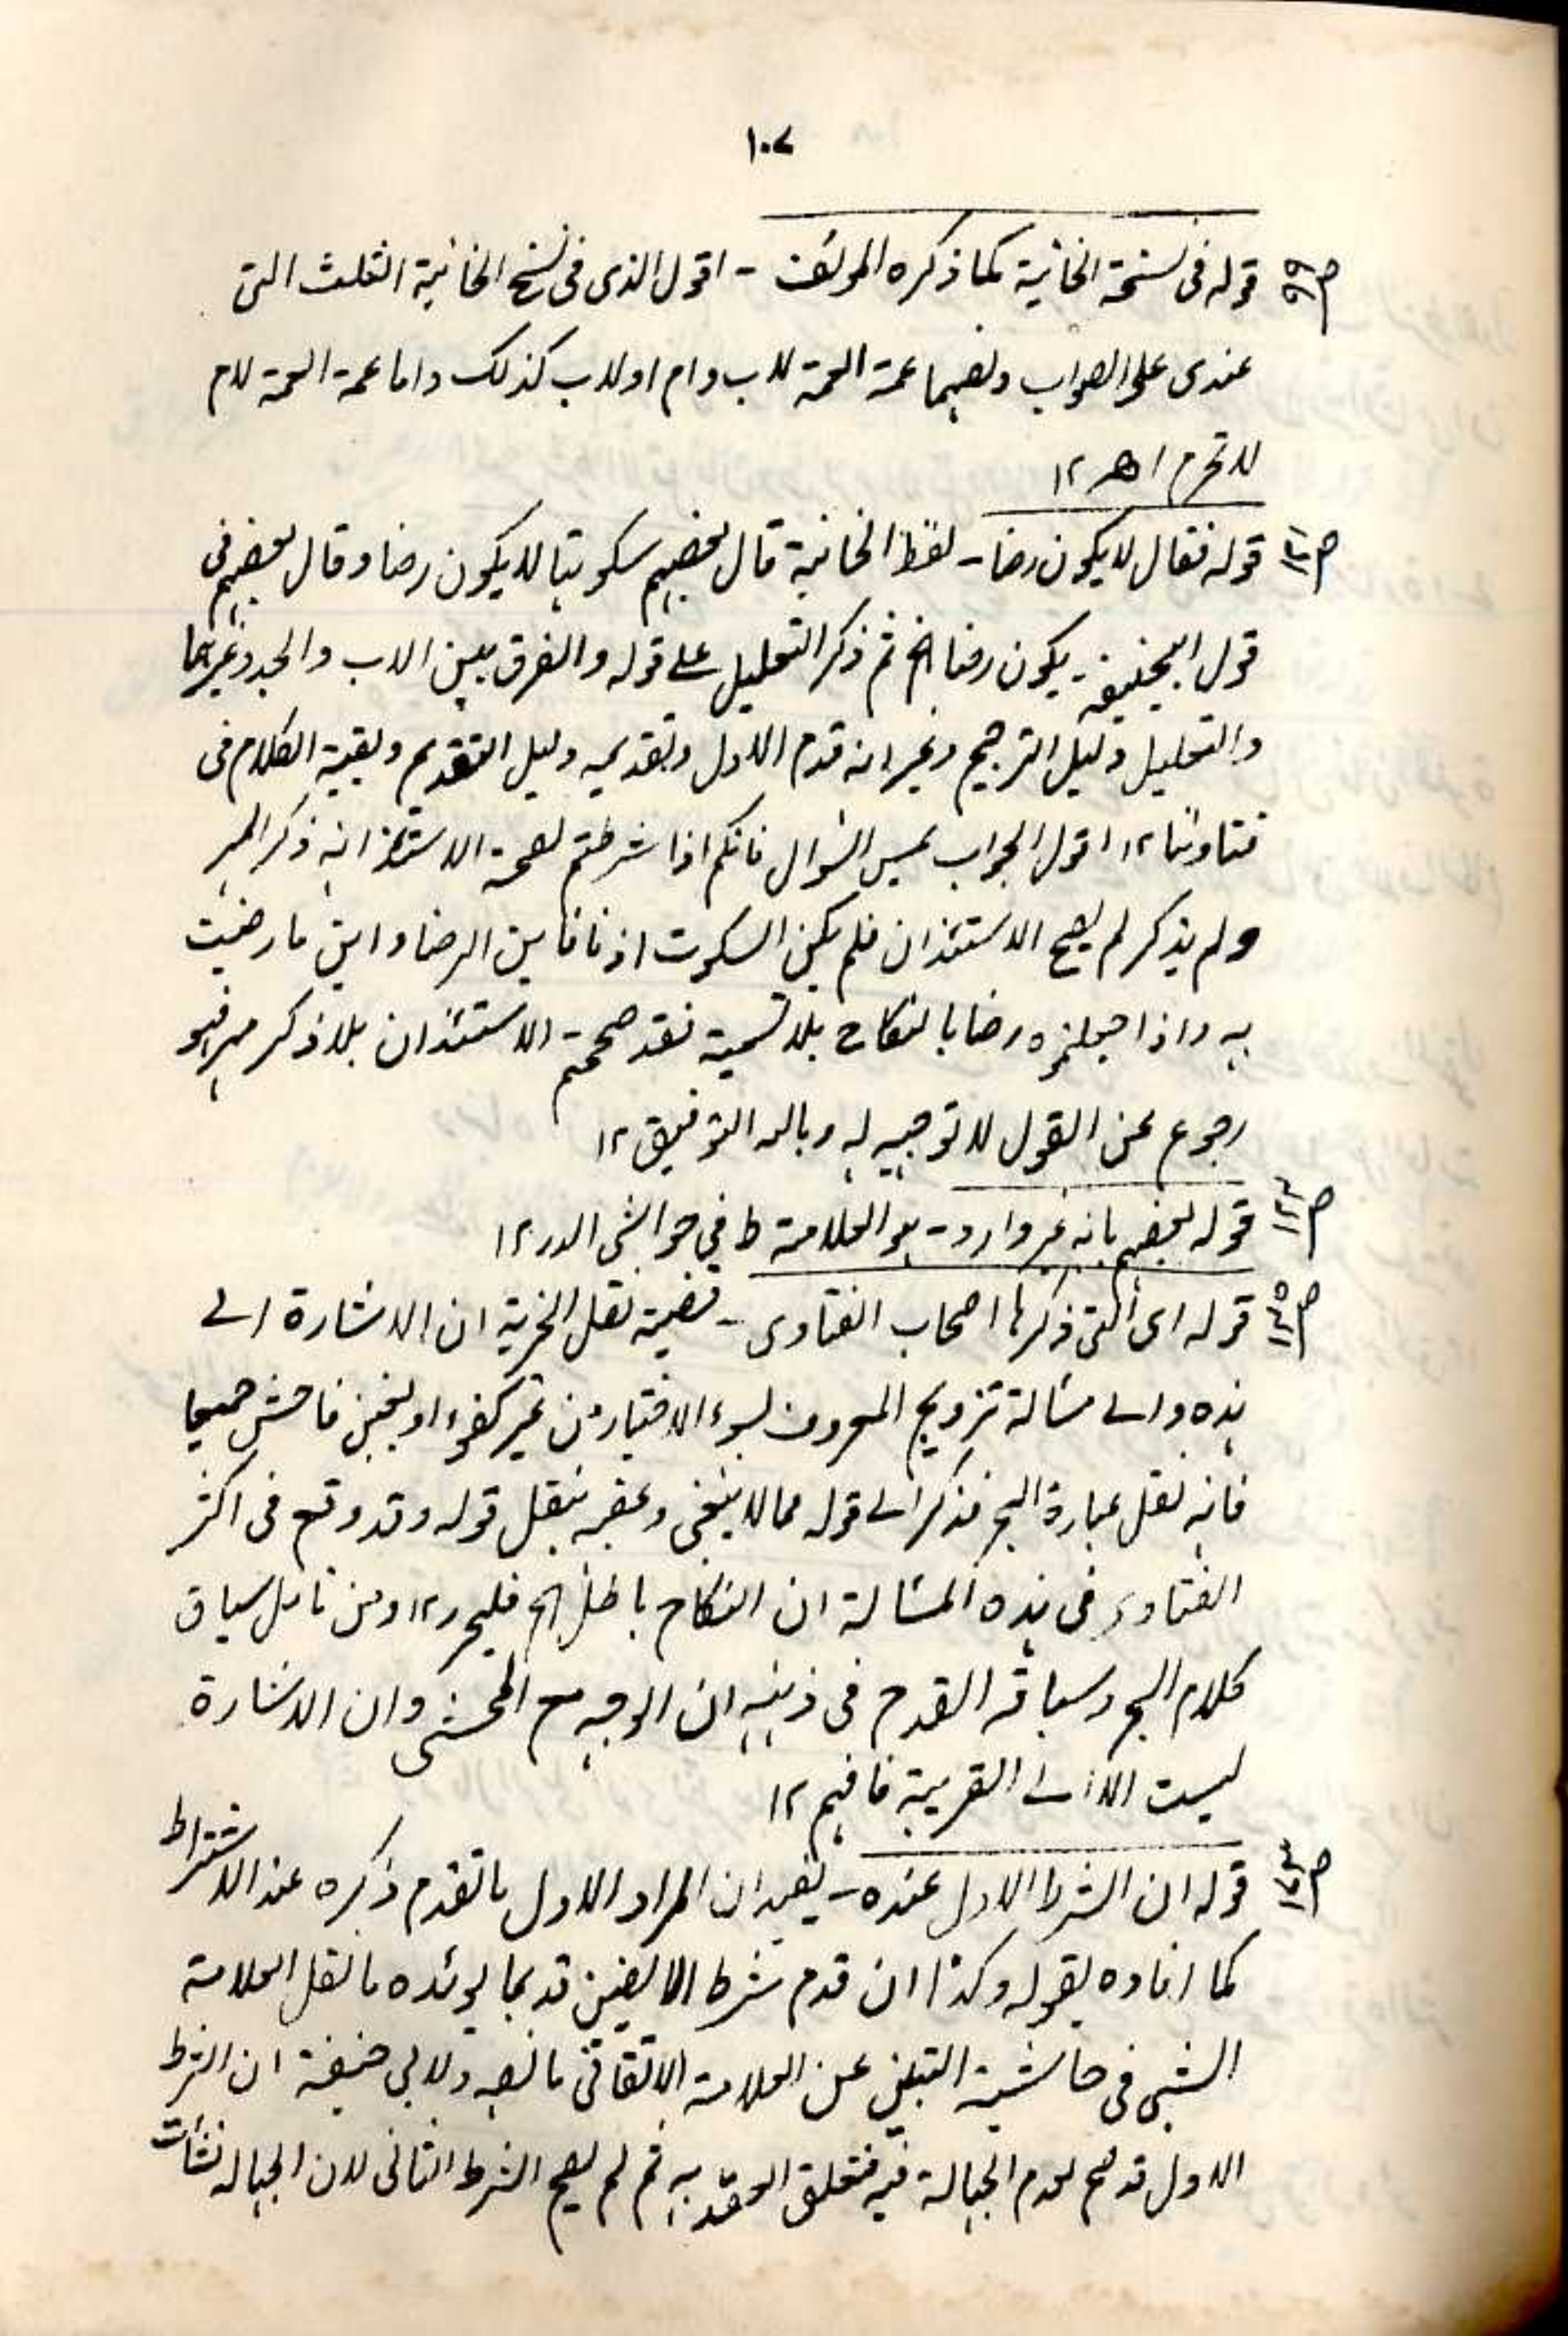 ١٠٧
ص٩٩ قوله فى نسخة الخانية كما ذكره المولف - اقول الذى فى نسخ الخانية الثلث التى
عندى على الصواب ونصهما عمة العمة لاب وام او لاب كذلك واما عمة العمة لام
لا تحرم اھ ١٢
قوله فقال لا يكون رضا - لفظ الخانية قال بعضهم سكوتها لا يكون رضا وقال بعضهم فى
قول ابيحنيفة يكون رضا الخ ثم ذكر التعليل على قوله والفرق بين الاب والجد وغيرهما
والتعليل دليل الترجيح وغير انه قدم الاول وتقديمه دليل التقديم وبقية الكلام فى
فتاوٰنا ١٢ اقول الجواب عين السُوال فانكم اذا شرطتم لصحة الاستئذانه ذكر المهر
ولم يذكر لم يصح الاستئذان فلم يكن السكوت اذنا فاين الرضا واين ما رضيت
به واذا جعلتموه رضا بالنكاح بلا تسمية فقد صححتم الاستئذان بلا ذكر مهر فهو
رجوع عن القول لا توجيه له وبالله التوفيق ١٢
قوله بعضهم بانه غير وارد - هو العلامة ط في حواشى الدر ١٢
ص١٣٥ قوله اى التى ذكرها اصحاب الفتاوى - قضية نقل الخيرية ان الاشارة الے
هذه والے مسألة تزويج المعروف بسوء الاختيار من غير كفوء او بغبن فاحش جميعا
فانه نقل عبارة البحر فذكر الے قوله مما لا ينبغى وعقبه بنقل قوله وقد وقع فى اكثر
الفتاوى فى هذه المسألة ان النكاح باطل الخ فليحرر ١٢ ومن تامل سياق
كلام البحر وسباقه انقدح فى ذهنه ان الوجه مع المحشى وان الاشارة
ليست الا الے القريبة فافهم ١٢
قوله ان الشرط الاول عنده - يفيد ان المراد الاول ما تقدم ذكره عند الاشتراط
كما افاده بقوله وكذا ان قدم شرط الالفين قد بما يوئده ما نقل العلامة
الشلبى فى حاشية التبيين عن العلامة الاتقانى ما نصه ولابى حنيفة ان الشرط
الاول قد صح لعدم الجهالة فيه فتعلق العقد به ثم لم يصح الشرط الثانى لان الجهالة نشأت